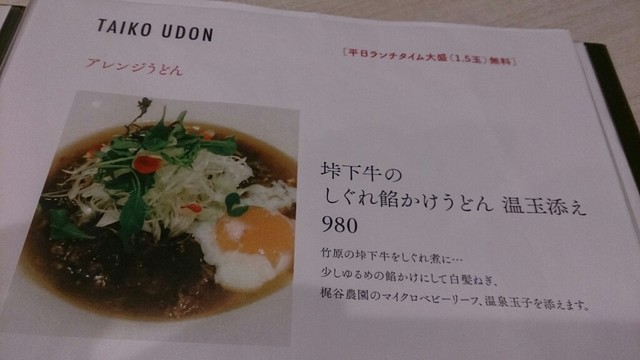 TAIKO UDON
[平日ランチタイム大盛(1.5玉)無料]
アレンジうどん
垰下牛の
しぐれ餡かけうどん 温玉添え
980
竹原の垰下牛をしぐれ煮に…
少しゆるめの餡かけにして白髪ねぎ、
梶谷農園のマイクロベビーリーフ、温泉玉子を添えます。